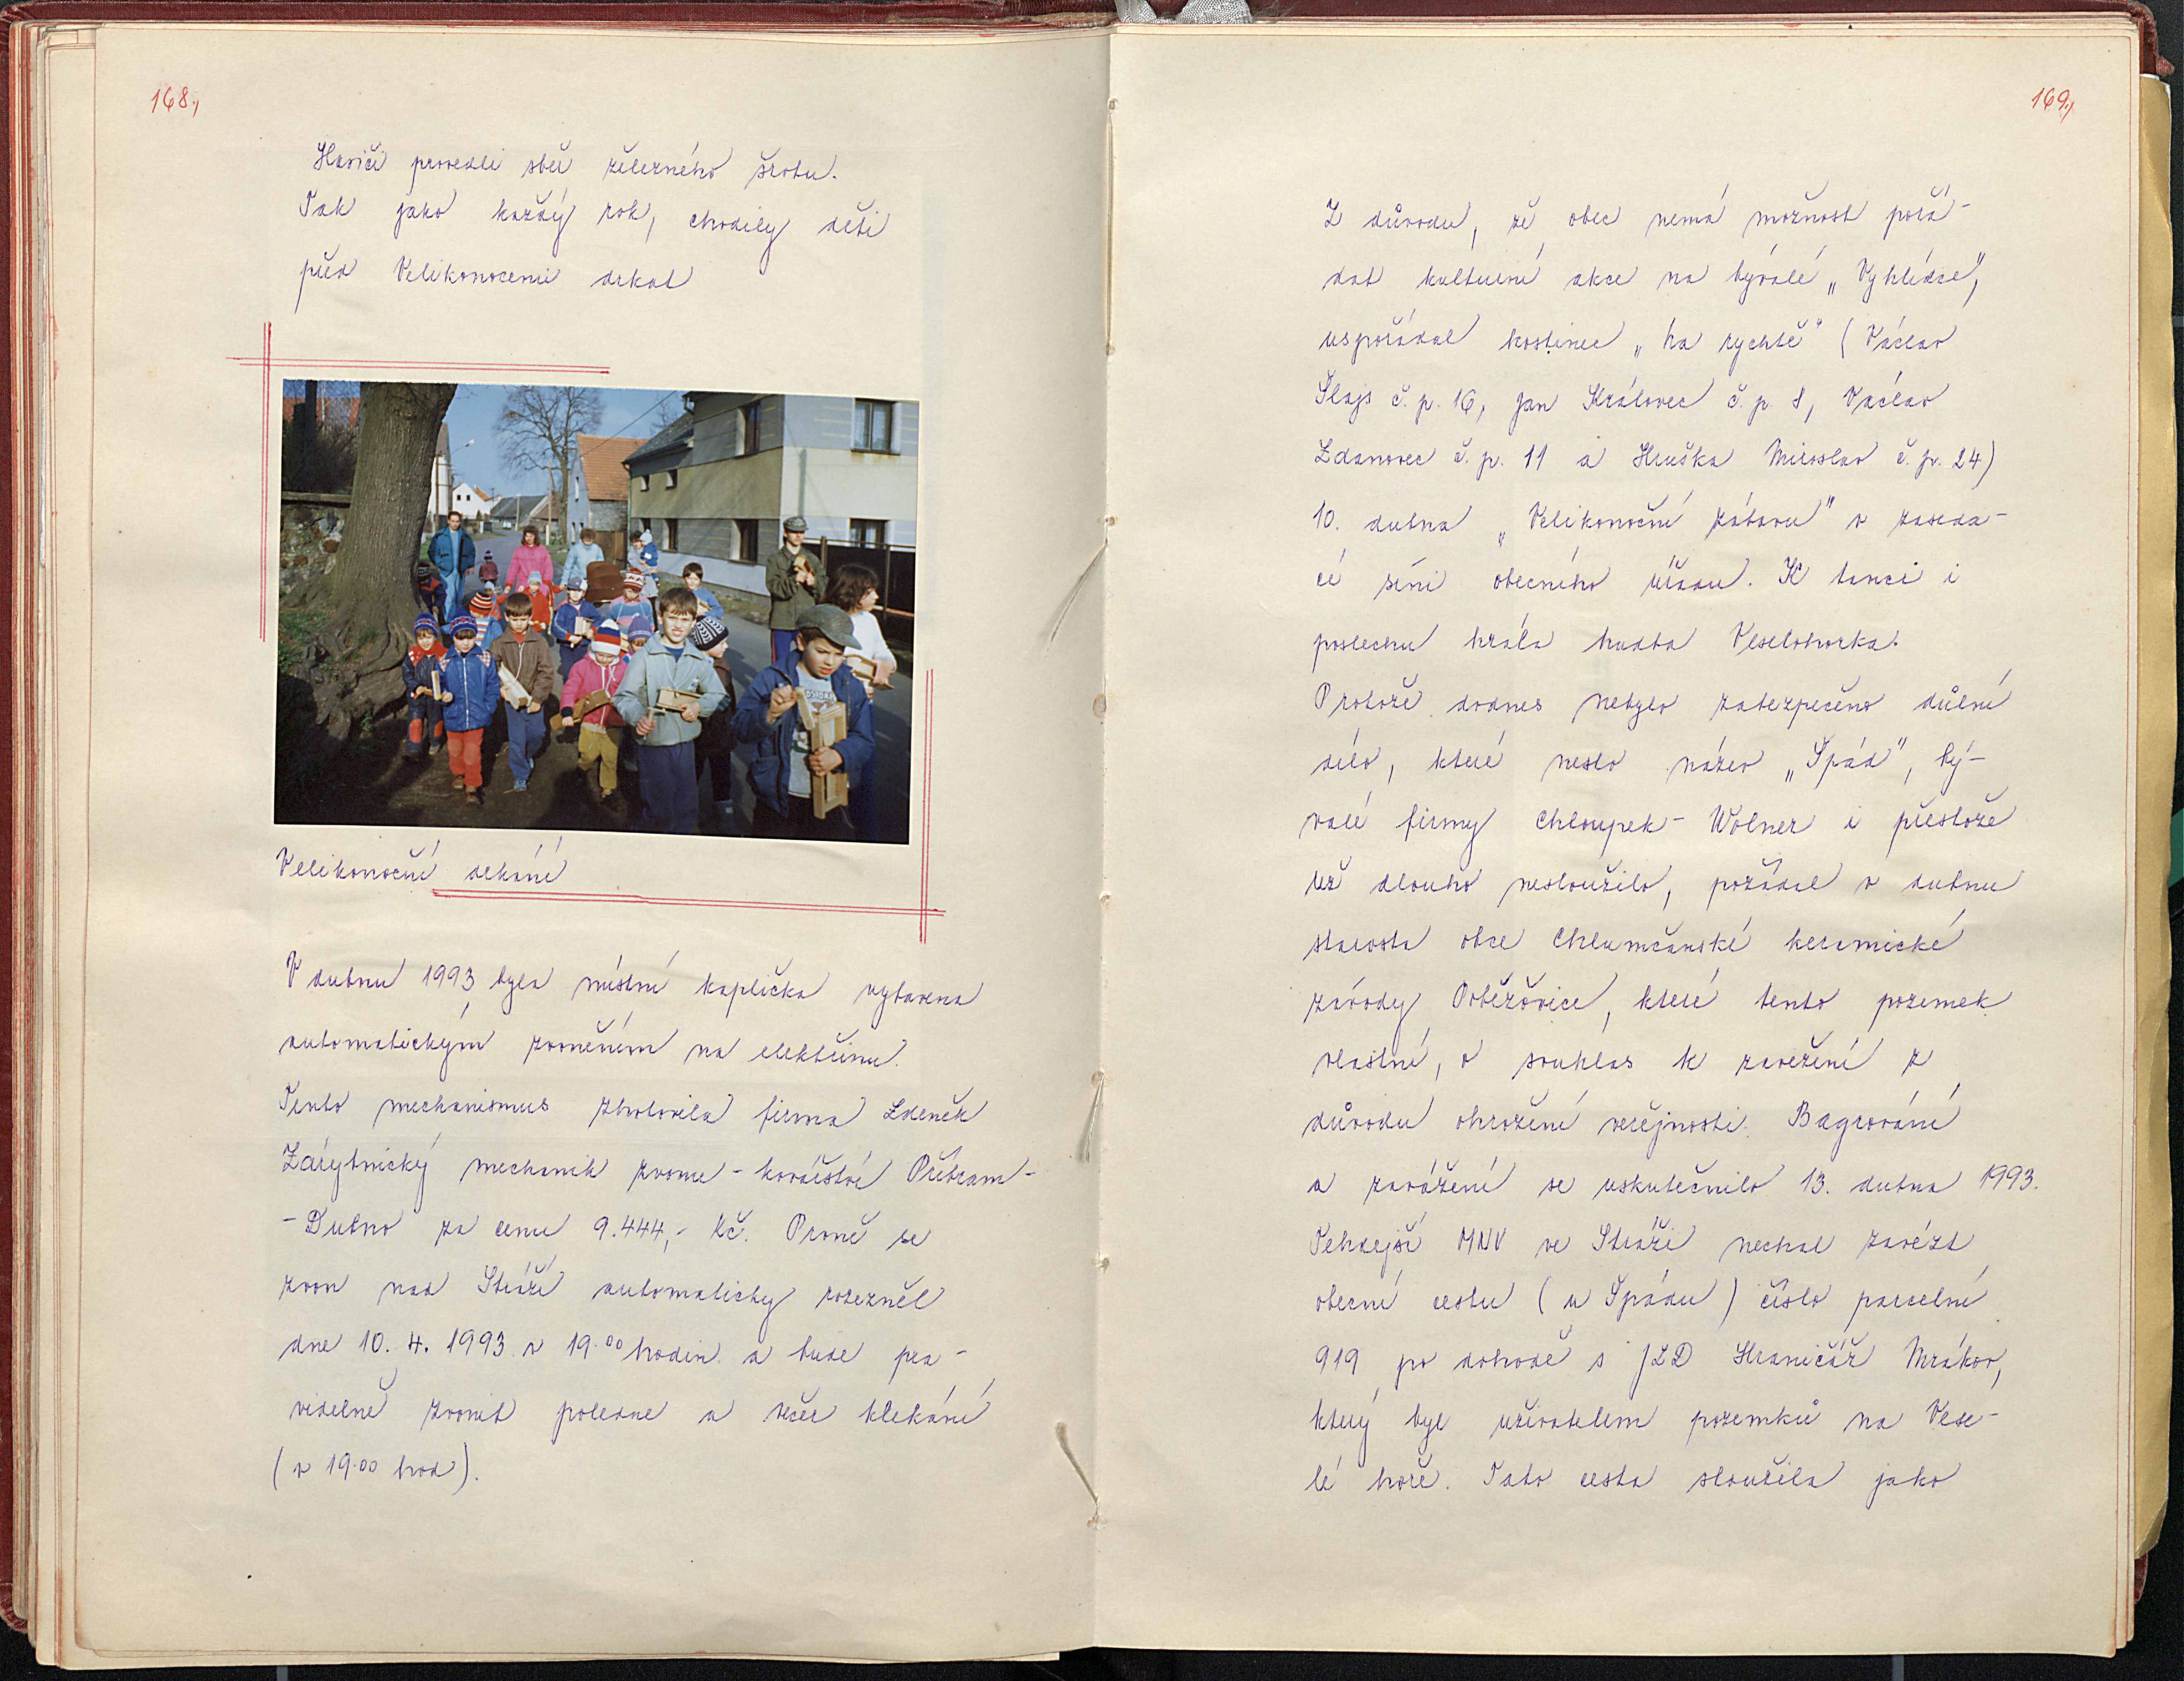 168.,
Hasiči provedli sběr železného šrotu.
Tak jako každý rok, chodily děti
před Velikonocemi drkat
Velikonoční drkání
V dubnu 1993 byla místní kaplička vybavena
automatickým zvoněním na elektřinu.
Tento mechanismus zhotovila firma Zdeněk
Zárybnický mechanik zvonu - kovářství Příbram -
- Dubno za cenu 9.444,- Kč. Prvně se
zvon nad Stráží automaticky rozezněl
dne 10. 4. 1993 v 19.00 hodin a bude pra-
videlně zvonit poledne a večer klekání
(v 19.00 hod).
169.,
Z důvodu, že obec nemá možnost pořá-
dat kulturní akce na bývalé „Vyhlídce",
uspořádal hostinec „na rychtě" (Václav
Šlajs č.p. 16, Jan Královec č.p. 8, Václav
Zdanovec č.p. 11 a Hruška Miroslav č.p. 24)
10. dubna „Velikonoční zábavu" v zaseda-
cí síni obecného úřadu. K tanci i
poslechu hrála hudba Veselohorka.
Protože dodnes nebylo zabezpečeno důlní
dílo, které neslo název „Špád", bý-
valé firmy Chloupek - Wolner i přestože
už dlouho nesloužilo, požádal v dubnu
starosta obce Chlumčanské keramické
závody Poběžovice, které tento pozemek
vlastní, o souhlas k zavežení z
důvodu ohrožení veřejnosti. Bagrování
a zavážení se uskutečnilo 13. dubna 1993.
Tehdejší MNV ve Stráži nechal zavézt
obecní cestu (u Špádu) číslo parcelní
919 po dohodě s JZD Hraničář Mrákov,
který byl uživatelem pozemků na Vese-
lé hoře. Tato cesta sloužila jako